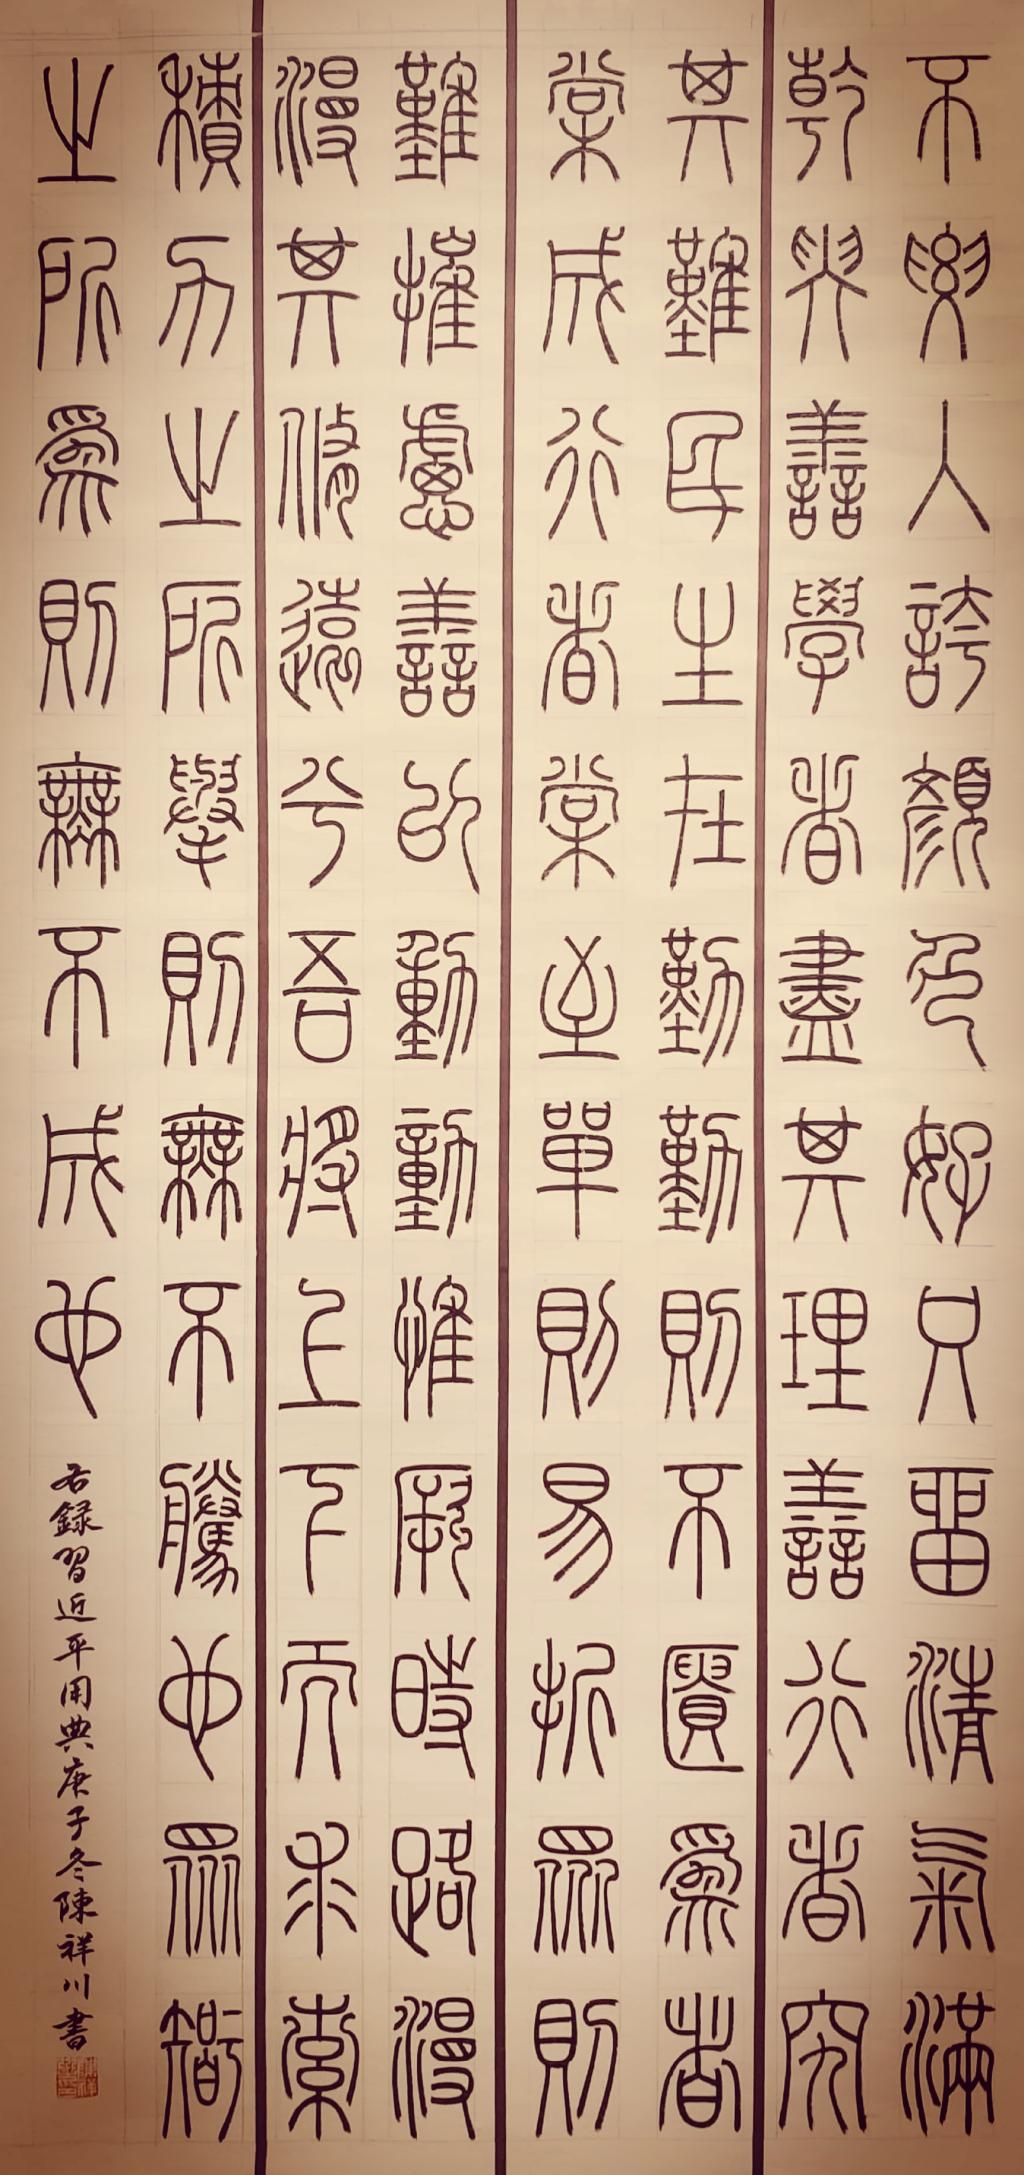 不要人誇顏色好只畱清氣滿
乾興善學者盡其理善行者究
其難民生在勤勤則不匱爲者
常成行者常至單則易折眾則
難摧慮善以動動惟厥時路漫
漫其修遠兮吾將上下而求索
積力之所舉則無不勝也眾智
之所爲則無不成也
右錄習近平用典庚子冬陳祥川書